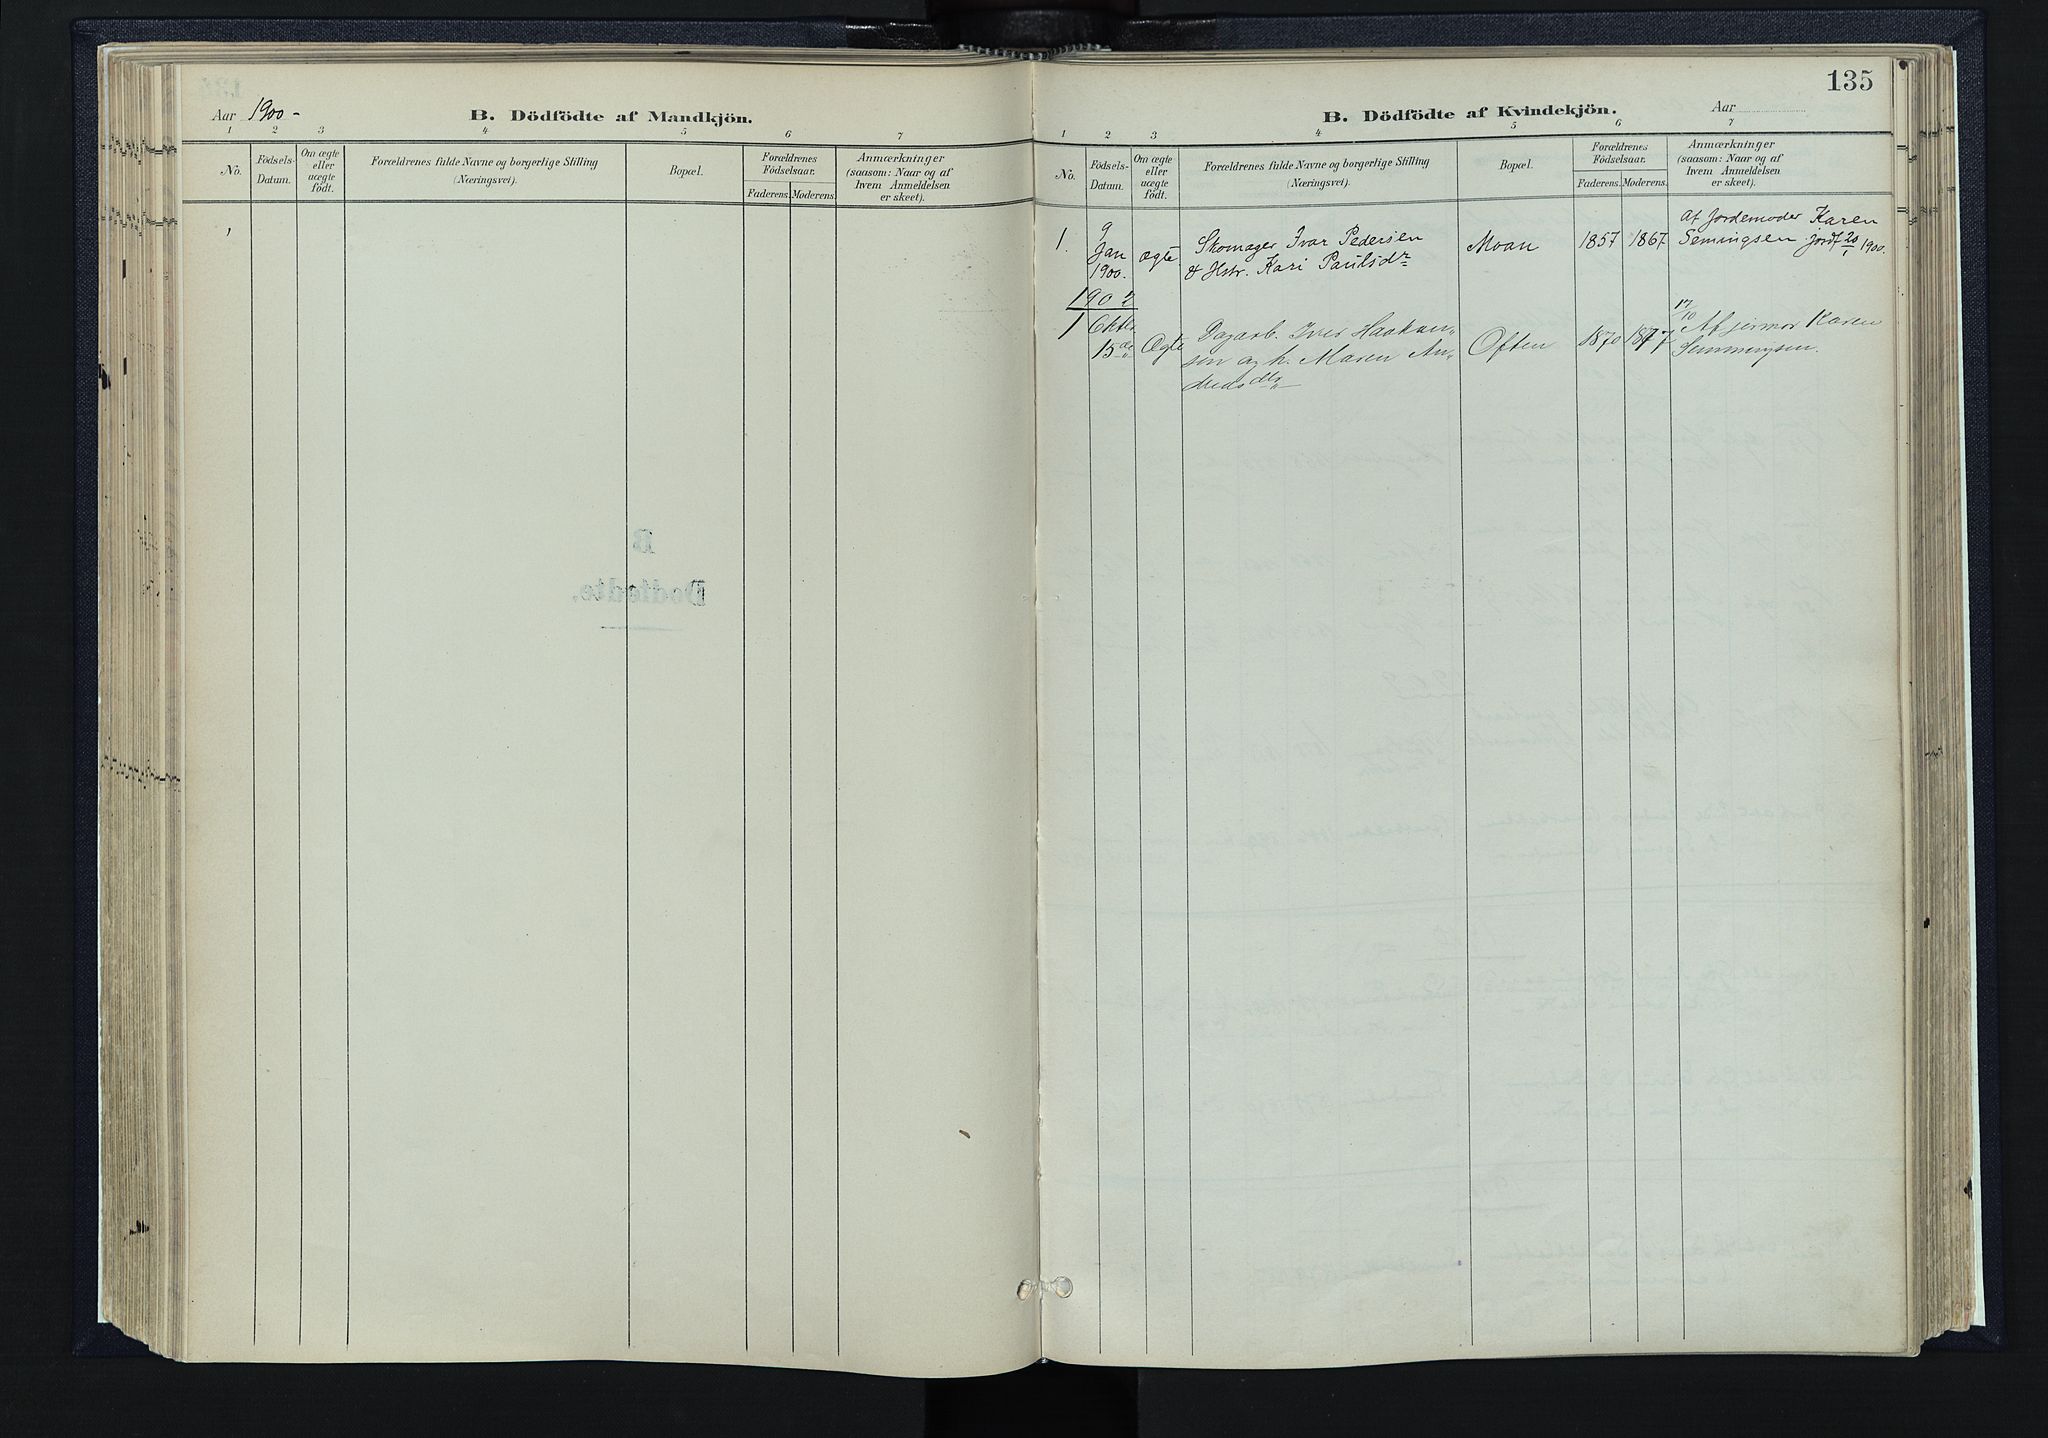 Aar 1900 -
B. Dödfödte af Mandkjön.
1 2 3 4 5 6 7
No.
Födsels-
Datum.
Om ægte
eller
uægte
födt.
Forældrenes fulde Navne og borgerlige Stilling
(Næringsvei).
Bopæl.
Forældrenes
Födselsaar.
Faderens. Moderens.
Anmærkninger
(saasom: Naar og af
hvem Anmeldelsen
er skeet).
135
B. Dödfödte af Kvindekjön.
Aar
1 2 3 4 5 6 7
No.
Födsels-
Datum.
Om ægte
eller
uægte
födt.
Forældrenes fulde Navne og borgerlige Stilling
(Næringsvei).
Bopæl.
Forældrenes
Födselsaar.
Faderens. Moderens.
Anmærkninger
(saasom: Naar og af
hvem Anmeldelsen
er skeet).
1.
9
Jan
1900.
ægte
Skomager Ivar Pedersen
& Hstr. Kari Paulsdr
Moan
1857 1867
Af Jordemoder Karen
Semingsen. jordf 20/1 1900.
1902
1
Oktbr
15de
Ægte
Dagarb. Iver Haakon„
sen og h. Maren An„
dreasdtr
Often
1870 1877
17/10 Af jormor Karen
Semmingsen.